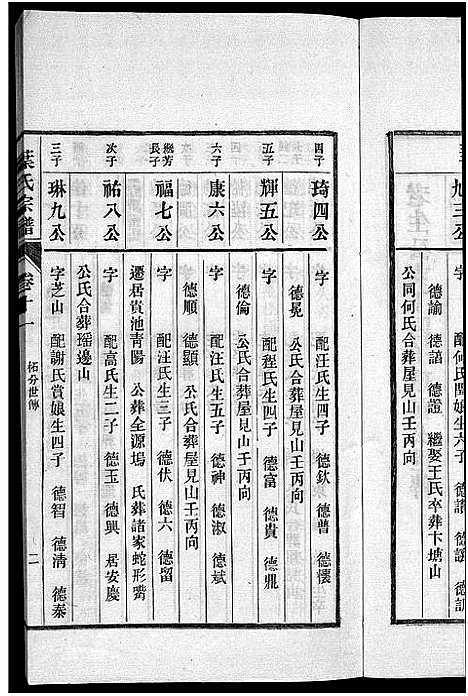 旭三公
字 配何氏閏娘生六子 德讀 德謡
德諭 德諳 德證 繼娶王氏卒葬卞塘山
公同何氏合葬屋見山壬丙向
四子
琦四公
字 配汪氏生四子 德欽 德普 德懷
德冕 公氏合葬屋見山壬丙向
五子
輝五公
字 配程氏生四子 德富 德貴 德鼎
德倫 公氏合葬屋見山壬丙向
六子
康六公
字 配汪氏生五子 德神 德淑 德斌
德順 德顯 公氏合葬屋見山壬丙向
懋芳長子
福七公
字 配汪氏生三子 德伏 德六 德留
遷居貴池青陽 公葬全源塢 氏葬諸家蛇形嘴
次子
祐八公
字 配高氏生二子 德玉 德興 居安慶
公氏合葬瑶邊山
三子
琳九公
字芝山 配謝氏賞娘生四子 德智 德清 德泰
葉氏宗譜
卷十一
柘分世傳
二